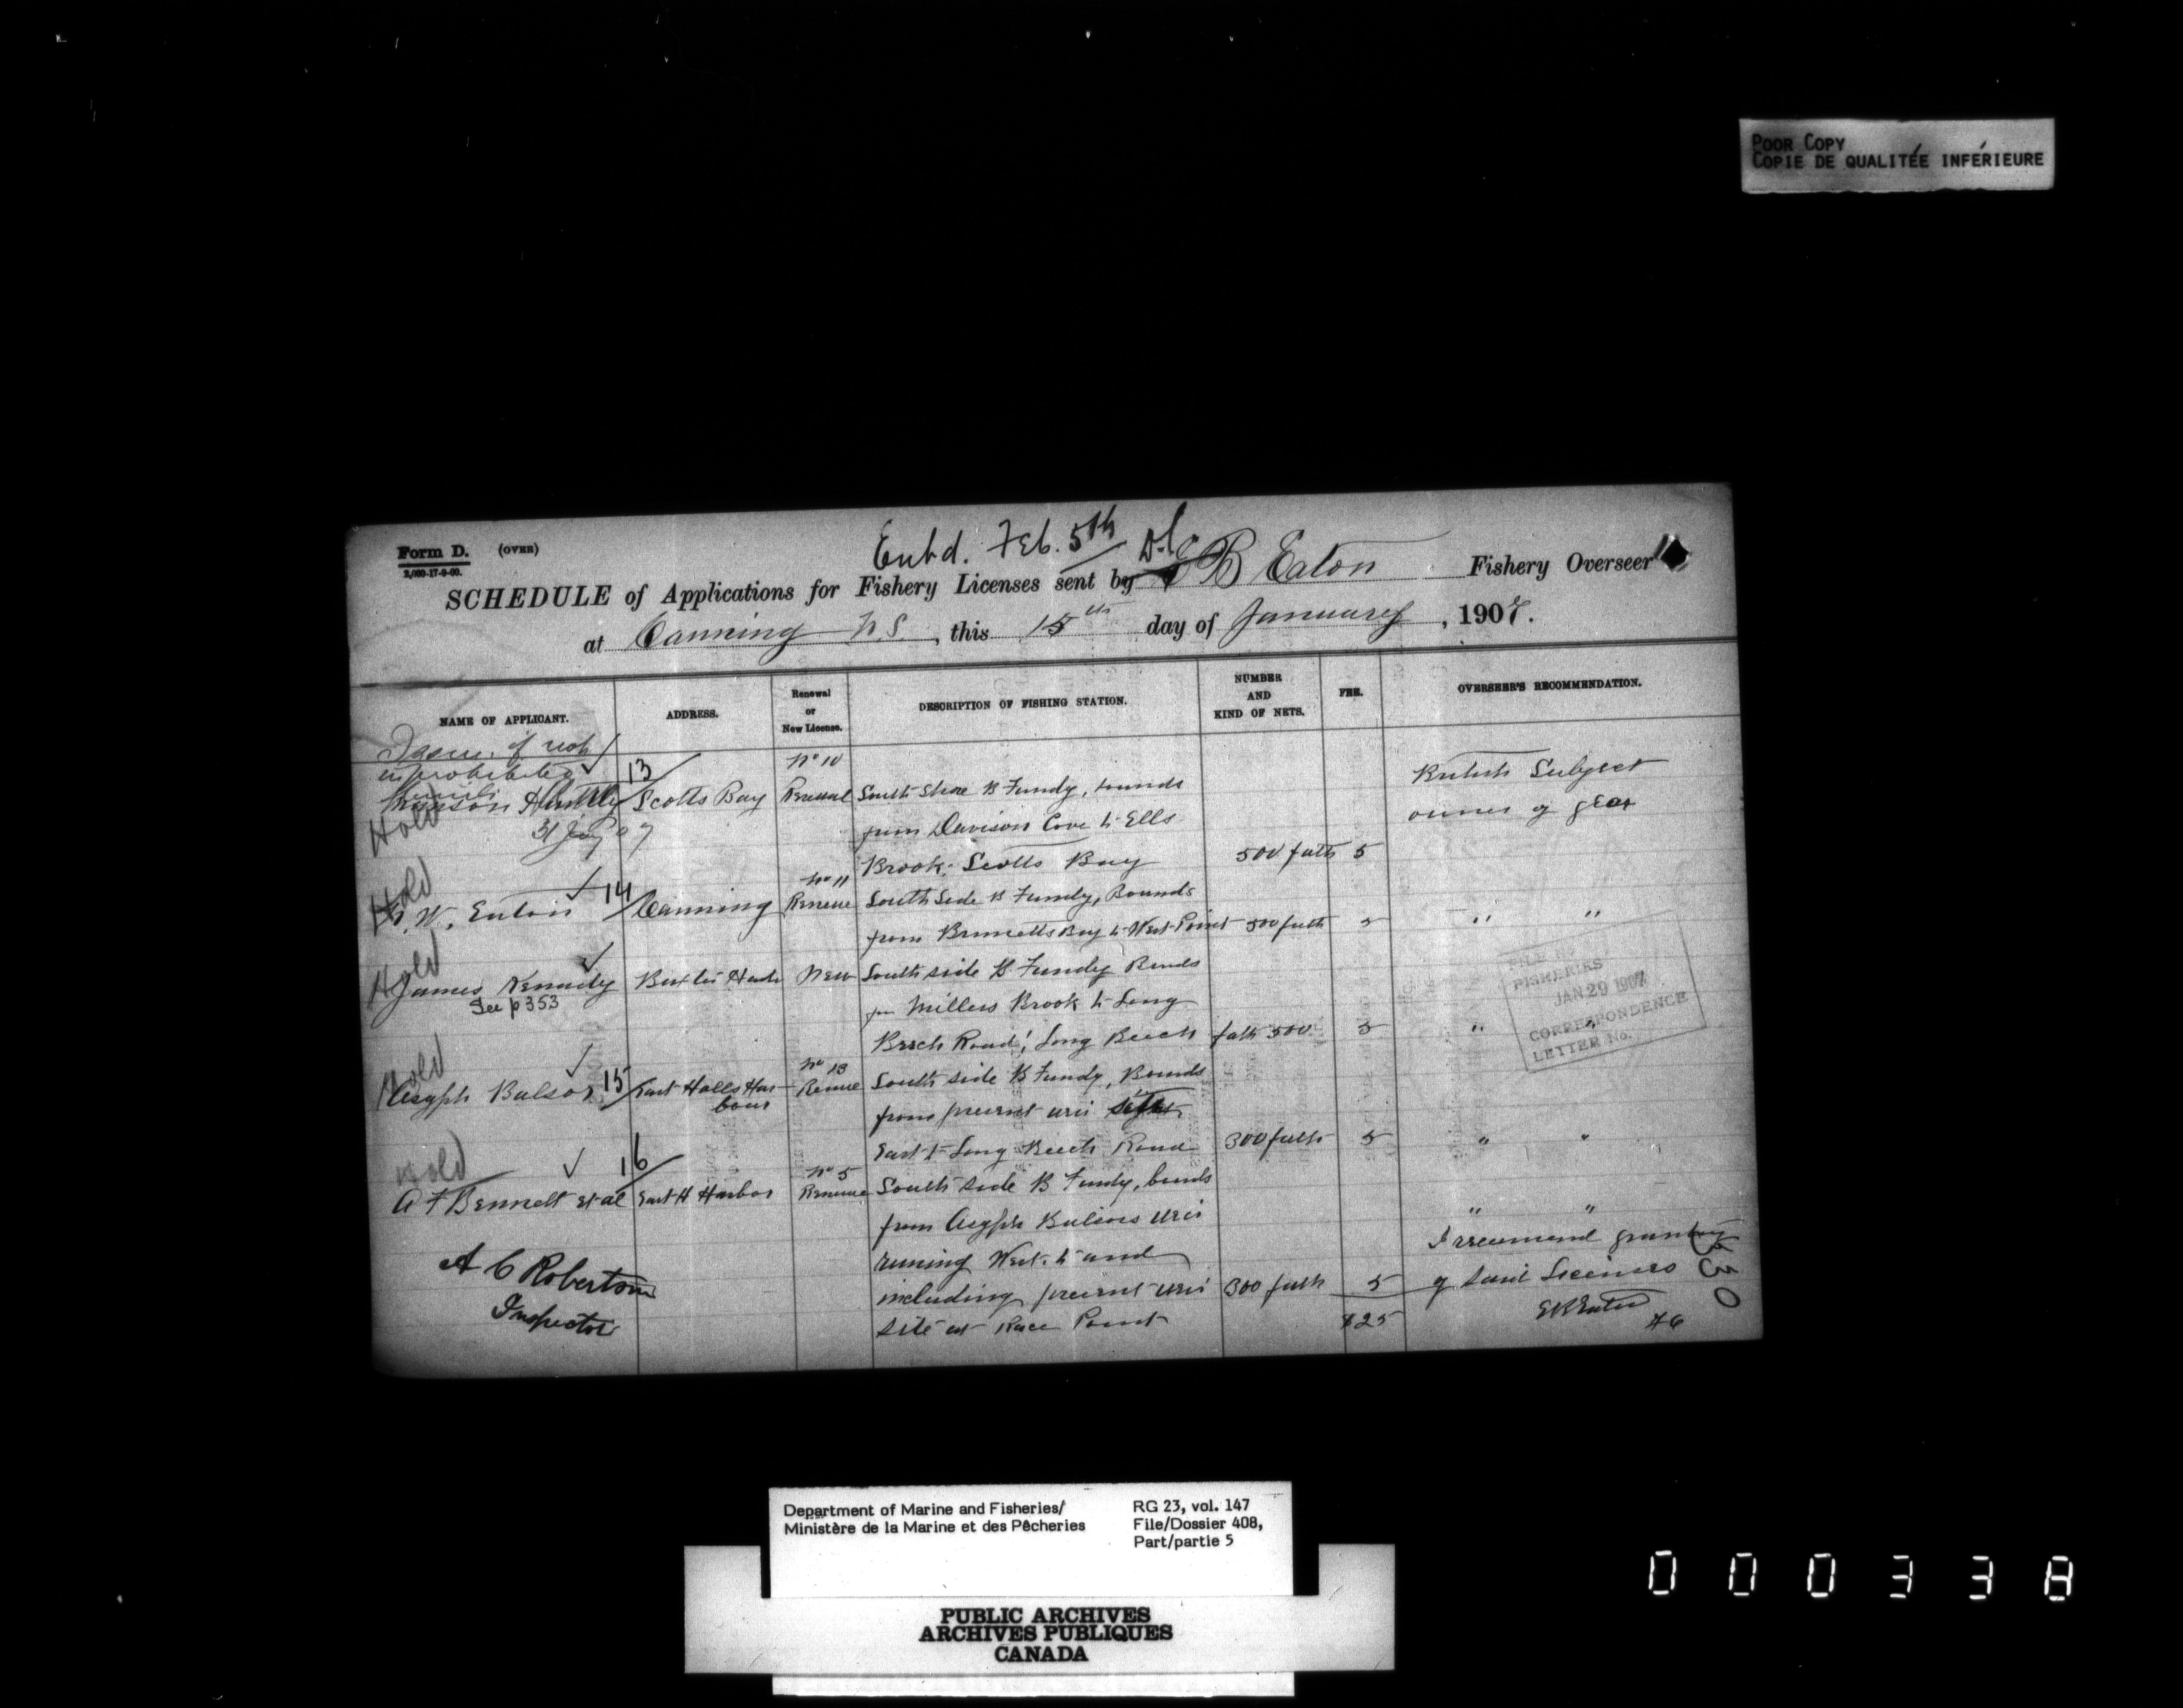 POOR COPY
COPIE DE QUALITÉE INFÉRIEURE
Form D. (OVER)
2,000-17-9-00.
Entd. Feb. 5th
SCHEDULE of Applications for Fishery Licenses sent by E B Eaton Fishery Overseer
at Canning N.S., this 15th day of January, 1907.
NAME OF APPLICANT. ADDRESS. Renewal or New License. DESCRIPTION OF FISHING STATION. NUMBER AND KIND OF NETS. FEE. OVERSEER'S RECOMMENDATION.
Issue if not
in prohibited
limits
Hold Huntly 13 Scotts Bay No 10 Renewal South Shore B Fundy, bounds British Subject
31 Jany 07 from Davison Cove to Ells owner of gear
Brook, Scotts Bay 500 fath 5
Hold W. Eaton 14 Canning No 11 Renewe South Side B Fundy, Bounds
from Bay to West Point 500 fath 5 " "
Hold James Kennedy New South side B Fundy Bounds
See p 353 fm Millers Brook to Long
Beech Road, Long Beech fath 500 5 " "
FILE No.
FISHERIES
JAN 29 1907
CORRESPONDENCE
LETTER No.
Hold Asyph Balsor 15 East Halls Harbour No 13 Renewe South side B Fundy, Bounds
from present wier
East to Long Beech Road 300 fath 5 " "
Hold A F Bennett et al 16 East H Harbor No 5 Renewe South side B Fundy, bounds
from Asyph Balsors wier " "
runing West to and I recumend granting
including present wier 300 fath 5 of said Licenses
site at Race Point $25 E B Eaton
A C Robertson
Inspector
330
Department of Marine and Fisheries/
Ministère de la Marine et des Pêcheries
RG 23, vol. 147
File/Dossier 408,
Part/partie 5
PUBLIC ARCHIVES
ARCHIVES PUBLIQUES
CANADA
000338